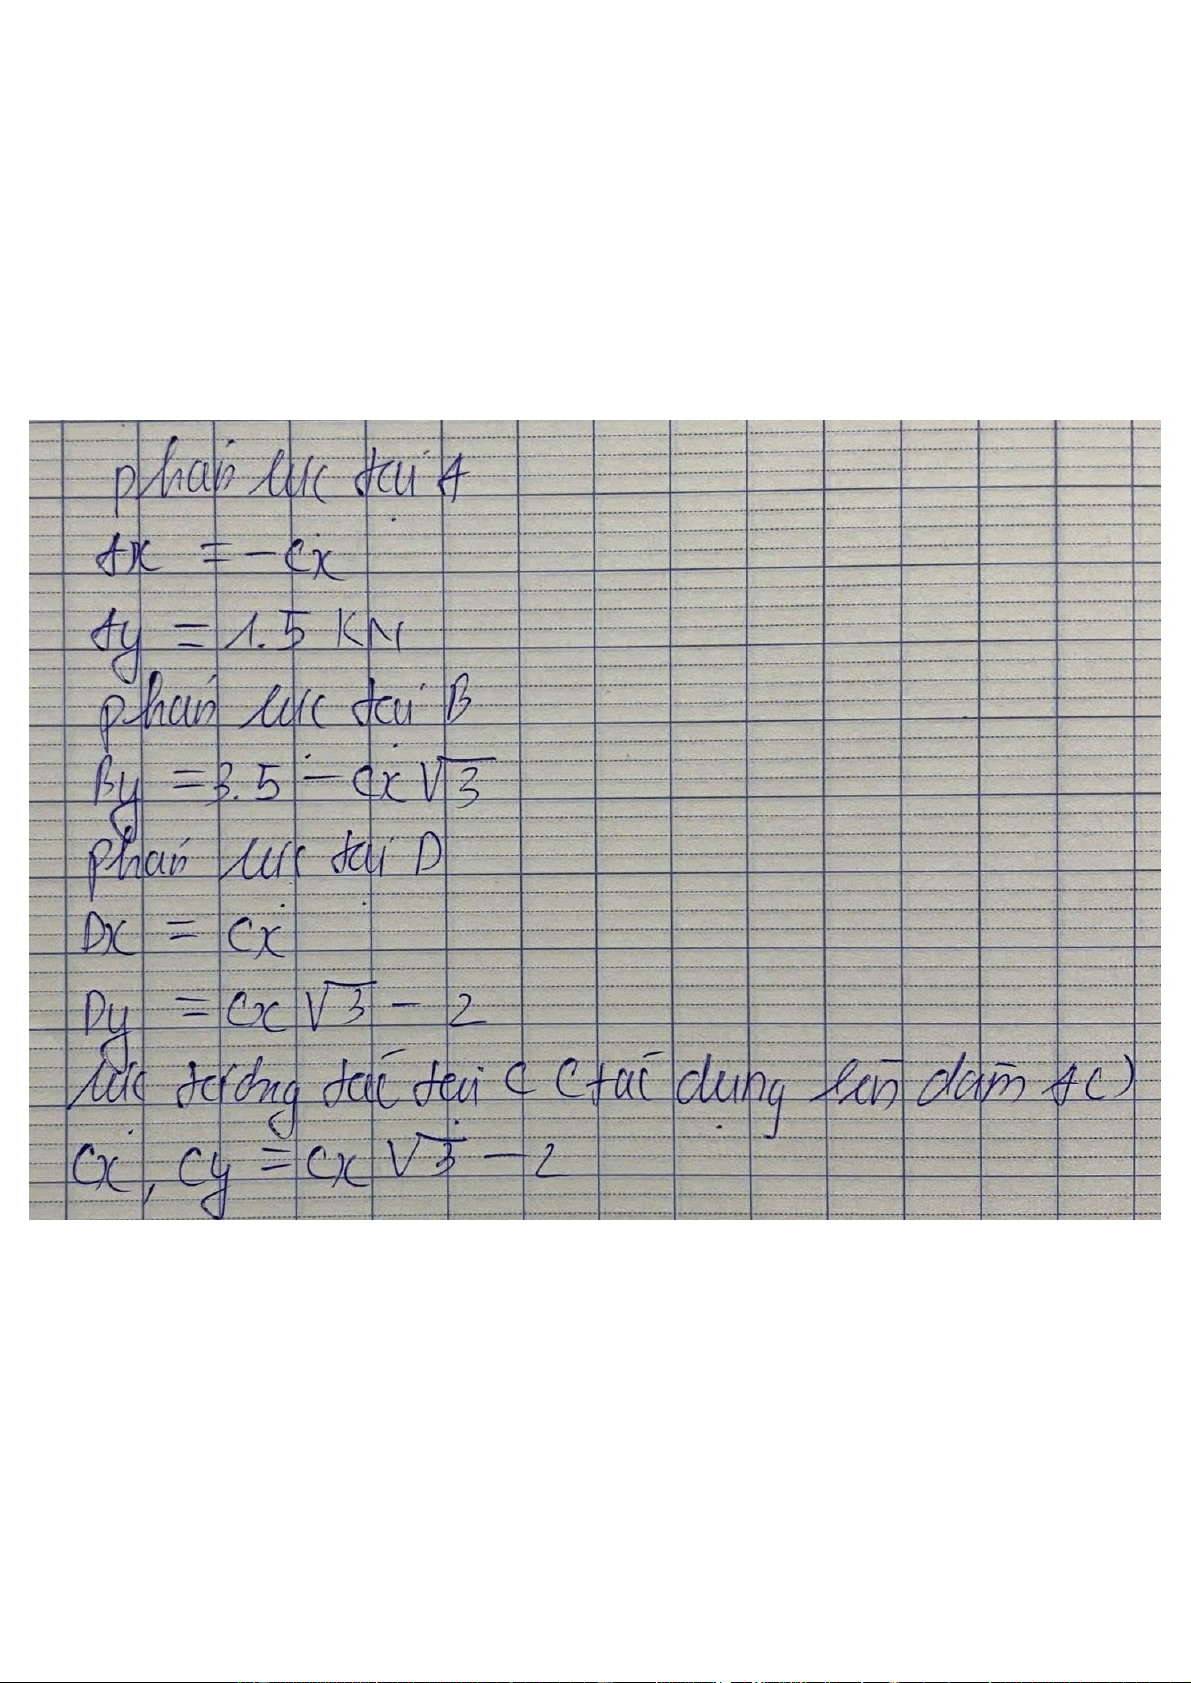 phản lực tại A
Ax = - Cx
Ay = 1.5 KN
phản lực tại B
By = 3.5 - Cx √3
phản lực tại D
Dx = Cx
Dy = Cx √3 - 2
lực tương tác tại C (tác dụng lên dầm AC)
Cx, Cy = Cx √3 - 2